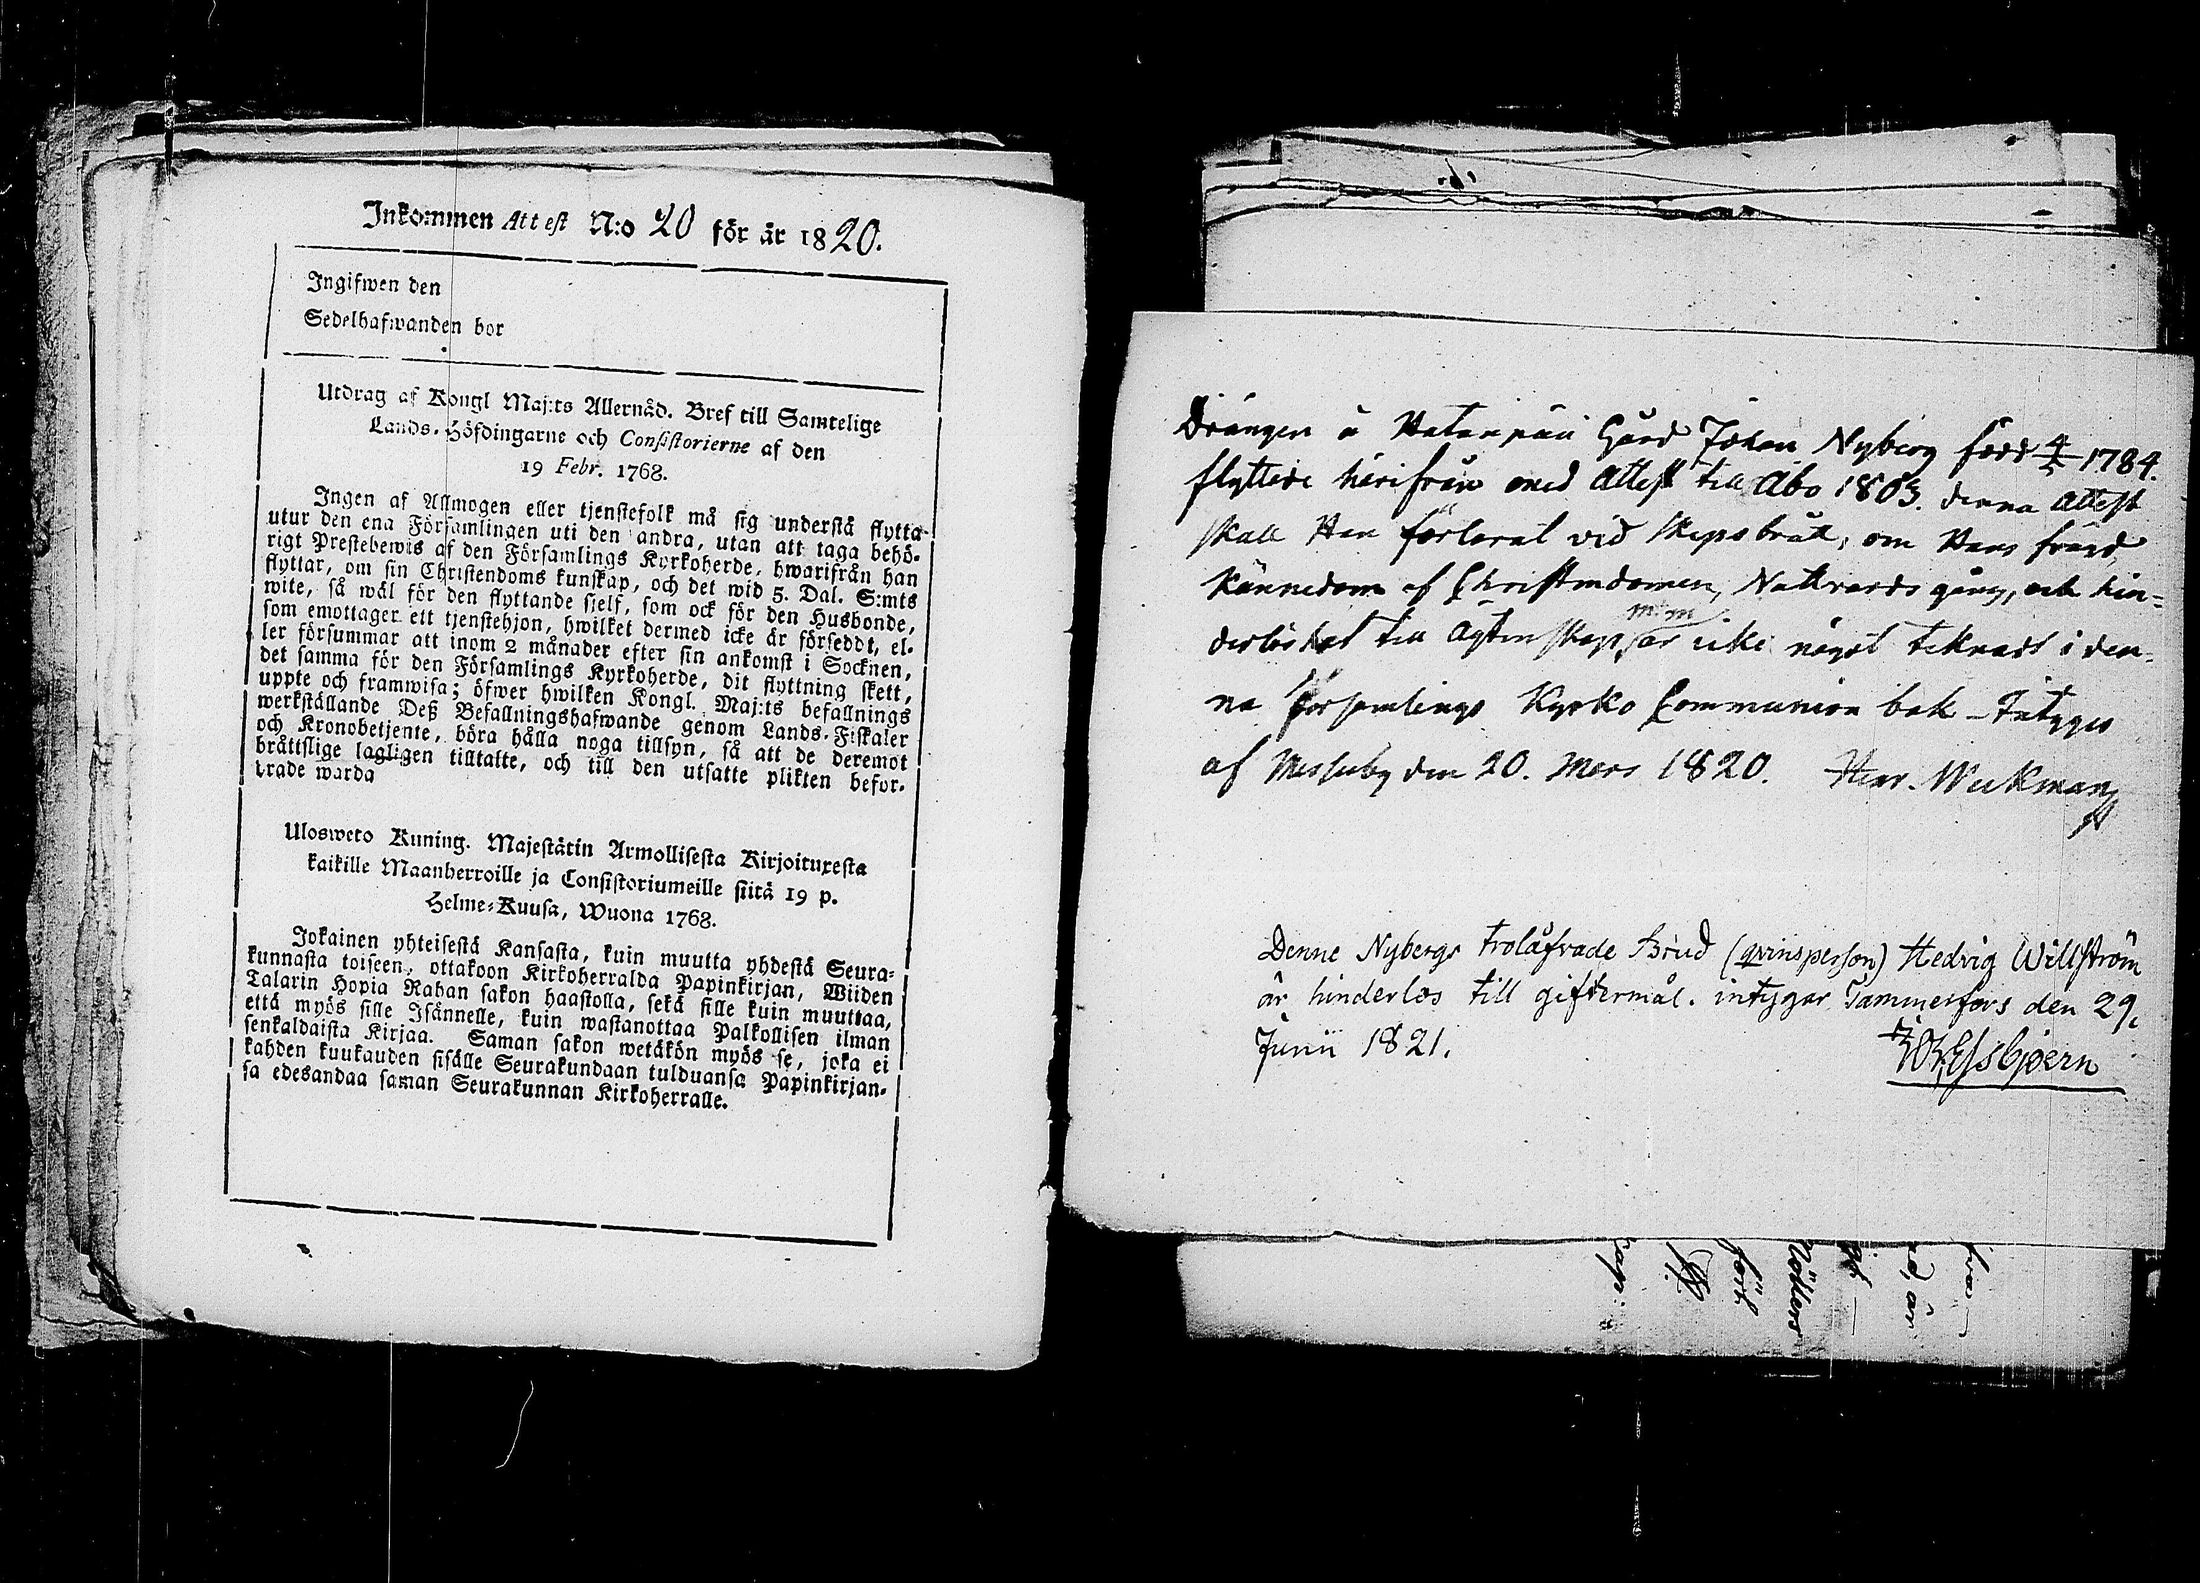 Inkommen Attest N:o 20 för år 1820.
Ingifwen den
Sedelhafwanden bor
Utdrag af Kongl Maj:ts Allernåd. Bref till Samtelige
Lands-Höfdingarne och Consistorierne af den
19 Febr. 1768.
Ingen af Allmogen eller tjenstefolk må sig understå flytta
utur den ena Församlingen uti den andra, utan att taga behö-
rigt Prestebewis af den Församlings Kyrkoherde, hwarifrån han
flyttar, om sin Christendoms kunskap, och det wid 5. Dal. S:mts
wite, så wäl för den flyttande sjelf, som ock för den Husbonde,
som emottager ett tjenstehjon, hwilket dermed icke är försedt, el-
ler försummar att inom 2 månader efter sin ankomst i Socknen,
det samma för den Församlings Kyrkoherde, dit flyttning skett,
uppte och framwisa; öfwer hwilken Kongl. Maj:ts befallnings
werkställande Deß Befallningshafwande genom Lands-Fiskaler
och Kronobetjente, böra hålla noga tillsyn, så att de deremot
bråttslige lagligen tilltalte, och till den utsatte plikten befor-
trade warda
Ulosweto Kuning. Majestätin Armollisesta Kirjoituxesta
kaikille Maanherroille ja Consistoriumeille siitä 19 p.
Helme-Kuusa, Wuona 1768.
Jokainen yhteisestä Kansasta, kuin muutta yhdestä Seura-
kunnasta toiseen, ottakoon Kirkoherralda Papinkirjan, Wiiden
Talarin Hopia Rahan sakon haastolla, sekä sille kuin muuttaa,
että myös sille Isännelle, kuin wastanottaa Palkollisen ilman
senkaldaista Kirjaa. Saman sakon wetäkön myös se, joka ei
kahden kuukauden sisälle Seurakundaan tulduansa Papinkirjan-
sa edesandaa saman Seurakunnan Kirkoherralle.
Drängen å Hatanpää Gård Johan Nyberg född 4/5 1784.
flyttede härifrån med Attest till Åbo 1803. denna Attest
skall Han förlorat vid skepsbråt, om Hans fräjd,
Kännedom af Christendomen, Nattvards gång, och hin-
derlöshet till Ägtenskap, m:m är icke något teknadt i den-
na församlings Kyrko Communion bok – Intygas
af Messuby den 20. Mars 1820. Henr. Weckman
Denne Nybergs trolåfvade Brud (qvinsperson) Hedvig Willström
är hinderlös till giftermål. intygar Tammerfors den 29.
Junii 1821.
Essbjörn
sap:
förk
Nötters
ed, är